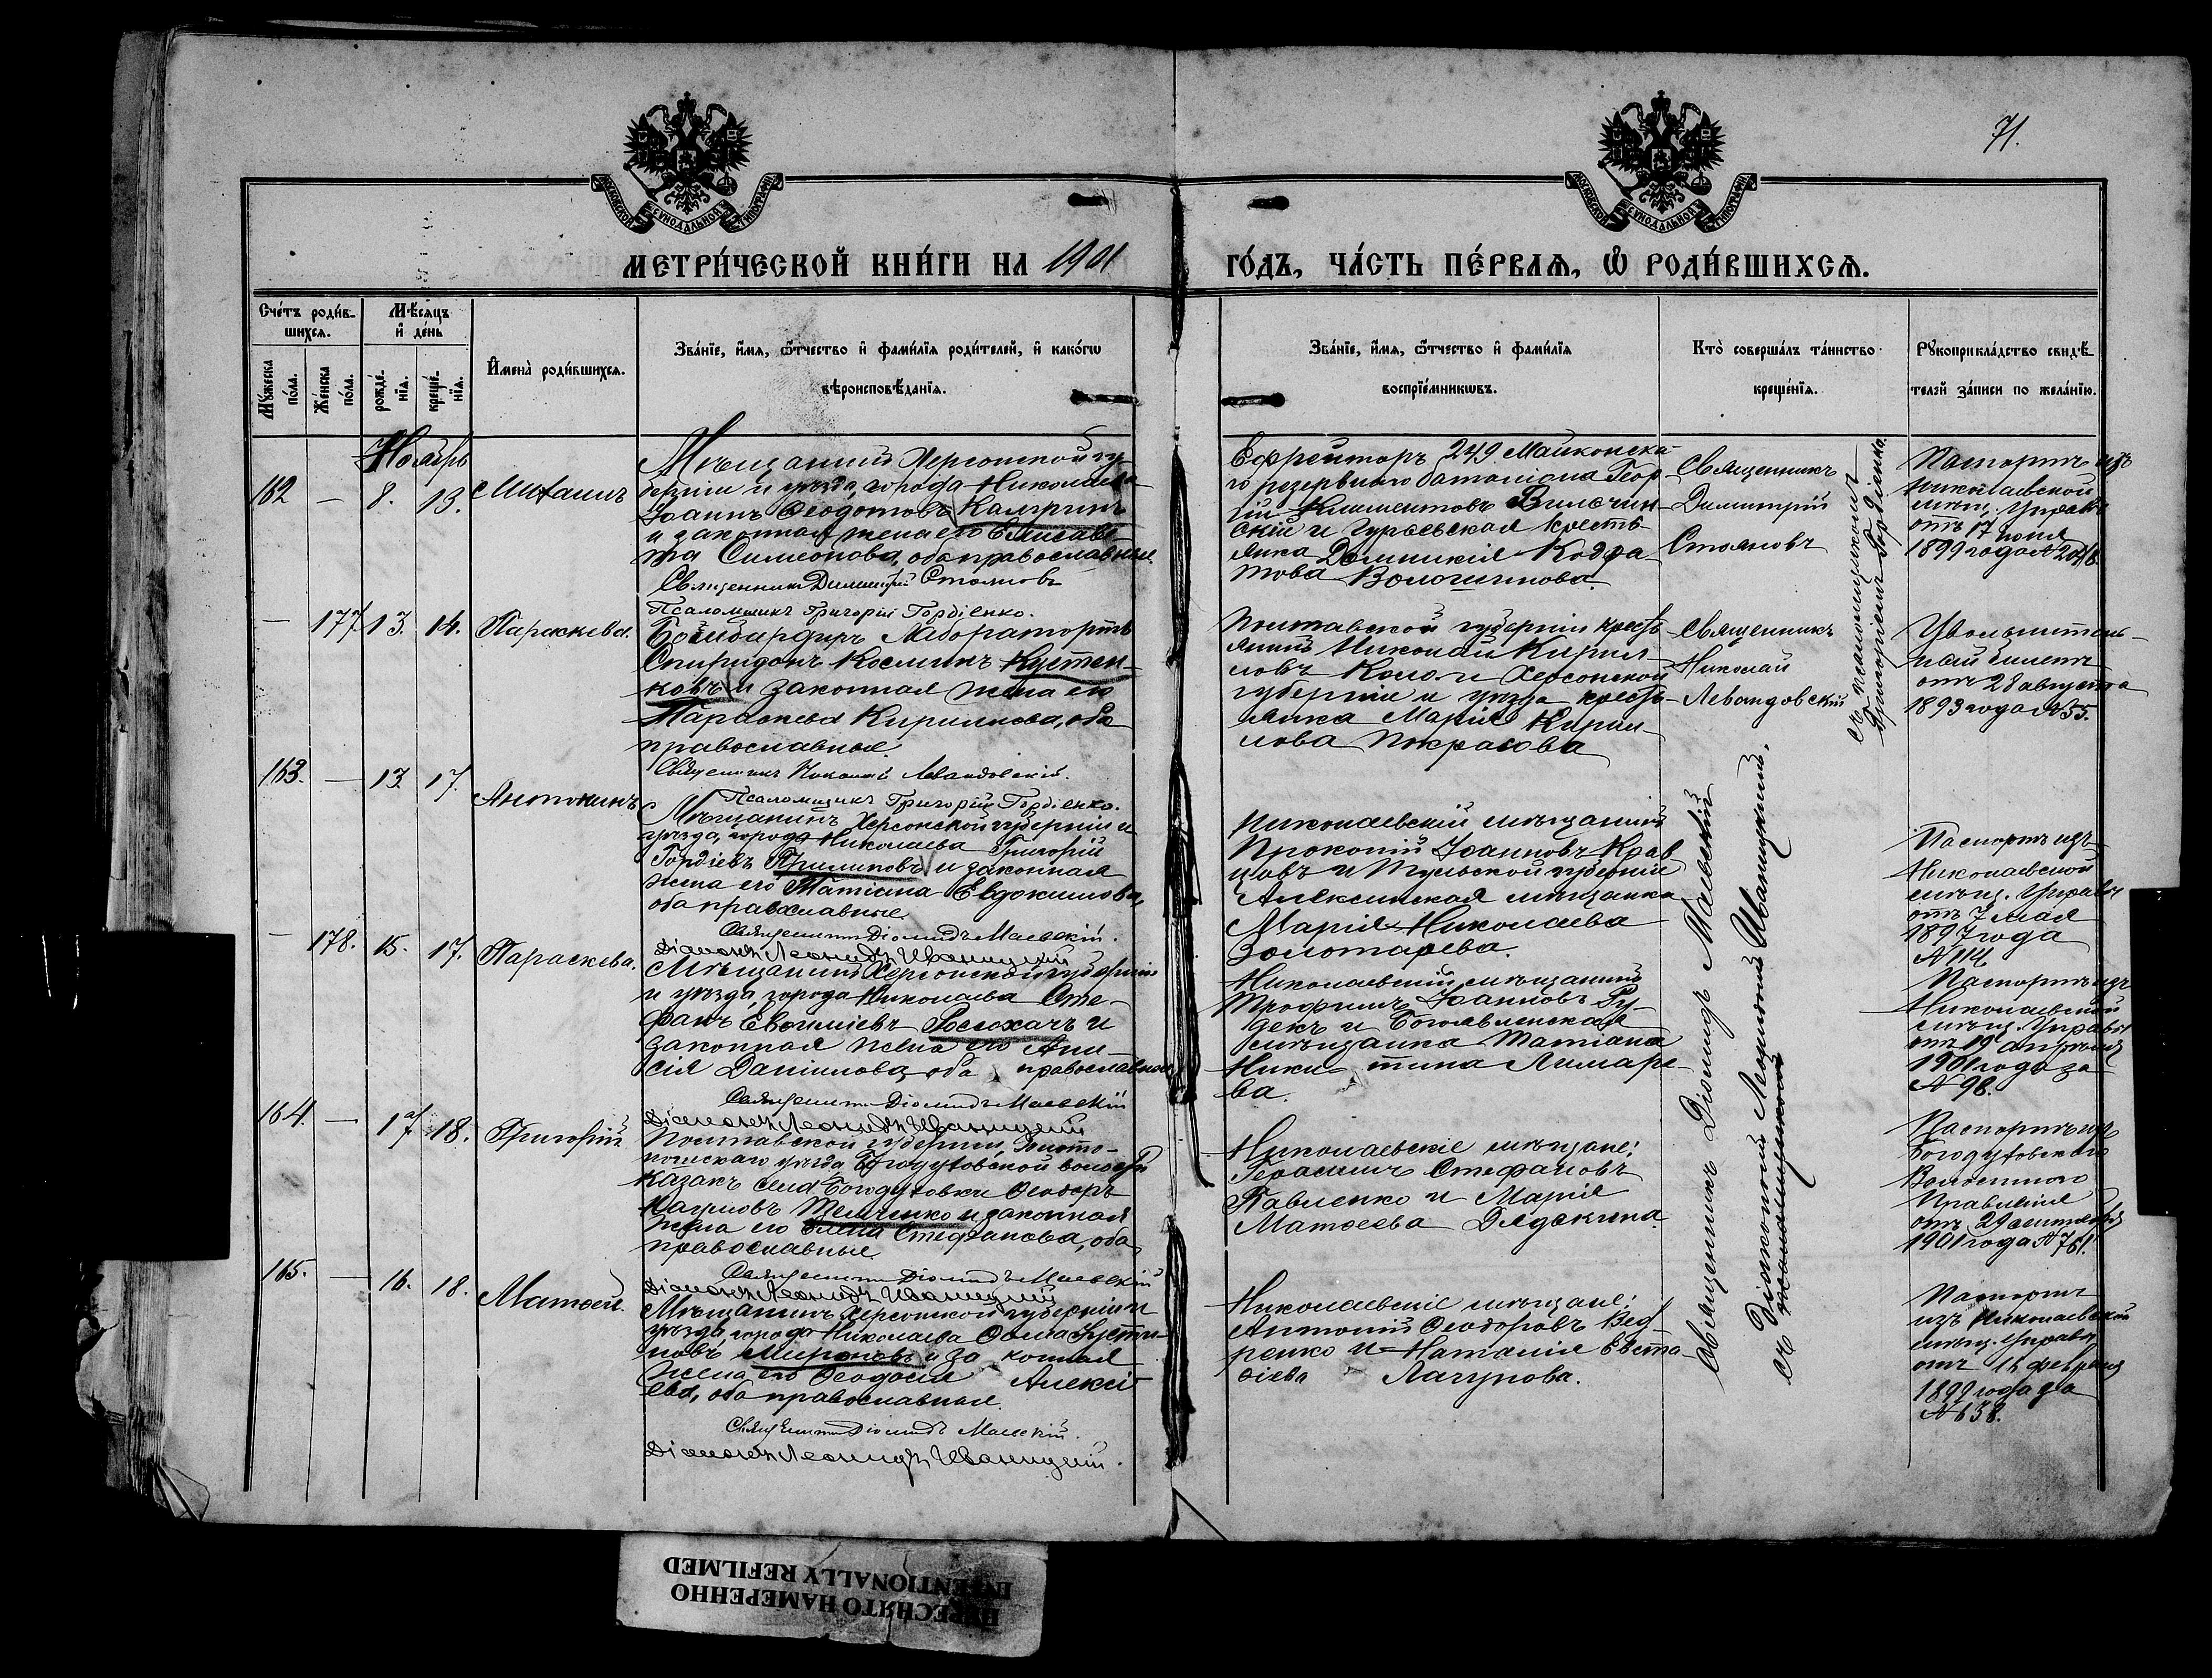 71.
МОСКОВСКОЙ СУНОДАЛЬНОЙ ТИПОГРАФІИ
МОСКОВСКОЙ СУНОДАЛЬНОЙ ТИПОГРАФІИ
МЕТРИ́ЧЕСКОЙ КНИ́ГИ НА 1901 ГО́ДЪ, ЧА́СТЬ ПЕ́РВАѦ, Ѡ҆ РОДИ́ВШИХСѦ.
Сче́тъ роди́в-
шихсѧ.
Мꙋ́жеска
по́ла.
Же́нска
по́ла.
Мѣ́сѧцъ
и҆ де́нь
рожде́-
нїѧ.
креще́-
нїѧ.
И҆мена̀ роди́вшихсѧ.
Зва́нїе, и҆́мѧ, ѻ҆́тчество и҆ фами́лїѧ роди́телей, и҆ како́гѡ
вѣроисповѣ́данїѧ.
Зва́нїе, и҆́мѧ, ѻ҆́тчество и҆ фами́лїѧ
воспрїе́мникѡвъ.
Кто̀ соверша́лъ та́инство
креще́нїѧ.
Рꙋкоприкла́дство свидѣ́-
телей за́писи по жела́нїю.
Ноябрь
162 — 8. 13. Михаилъ
Мѣщанинъ Херсонской гу-
берніи и уѣзда, города Николаева
Іоаннъ Ѳеодотовъ
и законная жена его Елисаве-
та Симеонова, оба православные.
Священникъ Димитрій Стояновъ
Псаломщикъ Григорій Гордіенко.
Ефрейторъ 249 Майкопска-
го резервнаго баталіона Геор-
гій Климентовъ
скій и Гурьевская кресть-
янка Кодра-
това Волошинова.
Священникъ
Димитрій
Стояновъ
Паспортъ изъ
Николаевской
мѣщ. Управы
отъ 17 іюня
1899 года №
— 177 13. 14. Параскева.
Бомбардиръ Лаборатористъ
Спиридонъ Косминъ Кустен-
ковъ и законная жена его
Параскева Кириллова, оба
православные.
Священникъ Николай Левандовскій.
Псаломщикъ Григорій Гордіенко.
Полтавской губерніи кресть-
янинъ Николай Кирил-
ловъ и Херсонской
губерніи и уѣзда кресть-
янка Марія Кирил-
лова Покрасова
Священникъ
Николай
Левандовскій
съ псаломщикомъ
Григоріемъ Гордіенко.
Увольнитель-
ный билетъ
отъ 28 августа
1893 года № 55.
163. — 13. 17. Антонинъ
Мѣщанинъ Херсонской губерніи и
уѣзда, города Николаева Григорій
Гордіевъ Филиповъ и законная
жена его Татіана Евдокимова,
оба православные.
Священникъ Діомидъ Маевскій.
Діаконъ Леонидъ Иваницкій
Николаевскій мѣщанинъ
Прокопій Іоанновъ Крав-
цовъ и Тульской губерніи
Алексинская мѣщанка
Марія Николаева
Золотарева.
Паспортъ изъ
Николаевской
мѣщ. Управы
отъ 7 мая
1897 года
№ 114.
— 178. 15. 17. Параскева.
Мѣщанинъ Херсонской губерніи
и уѣзда, города Николаева Сте-
фанъ Евѳиміевъ и
законная жена его Ани-
сія Данилова, оба православные.
Священникъ Діомидъ Маевскій
Діаконъ Леонидъ Иваницкій
Николаевскій мѣщанинъ
Трофимъ Іоанновъ Гу-
декъ и Богоявленская
мѣщанка Татіана
Ники- тина Лимаре-
ва.
Паспортъ изъ
Николаевской
мѣщ. Управы
отъ 19 апрѣля
1901 года за
№ 98.
164. — 17 18. Григорій
Полтавской губерніи, Золото-
ношскаго уѣзда Богодуховской волости
казакъ села Богодуховки Ѳеодоръ
Теличенко и законная
жена его Стефанова, оба
православные.
Священникъ Діомидъ Маевскій
Діаконъ Леонидъ Иваницкій
Николаевскіе мѣщане:
Герасимъ Стефановъ
Павленко и Марія
Матѳеева Дядекина.
Паспортъ изъ
Богодуховскаго
Волостного
Правленія
отъ 29 сентября
1901 года № 761.
165. — 16. 18. Матѳей.
Мѣщанинъ Херсонской губерніи и
уѣзда, города Николаева Ѳома Іусти-
новъ Мироновъ и за конная
жена его Ѳеодосія Алексі-
ева, оба православные.
Священникъ Діомидъ Маевскій.
Діаконъ Леонидъ Иваницкій.
Николаевскіе мѣщане:
Антоній Ѳеодоровъ Вед-
ренко и Наталія Евста-
фіева Лагунова.
Священникъ Діомидъ Маевскій
съ Діакономъ Леонидомъ Иваницкимъ.
Паспортъ
изъ Николаевской
мѣщ. Управы
отъ 16 февраля
1899 года за
№ 638.
ПЕРЕСНЯТО НАМЕРЕННО
INTENTIONALLY REFILMED